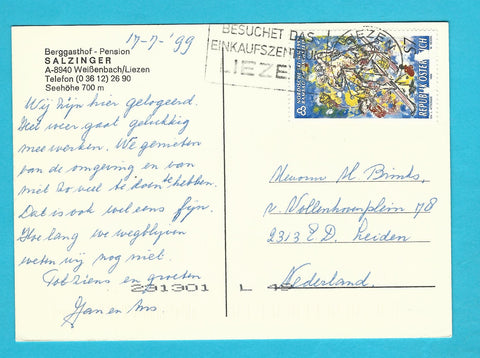 17-7-'99
Berggasthof - Pension
SALZINGER
A-8940 Weißenbach/Liezen
Telefon (0 36 12) 26 90
Seehöhe 700 m
BESUCHET DAS
EINKAUFSZENTRUM
LIEZEN
LIEZEN
REPUBLIK ÖSTERREICH
Wij zijn hier gelogeerd.
Het weer gaat gelukkig
mee werken. We genieten
van de omgeving en van
niet zo veel te doen te hebben.
Dat is ook wel eens fijn.
Hoe lang we wegblijven
weten wij nog niet.
Tot ziens en groeten
Jan en Ans.
Mevrouw M. Brinks,
v. Vollenhovenplein 78
2313 E.D. Leiden
Nederland.
231301 L